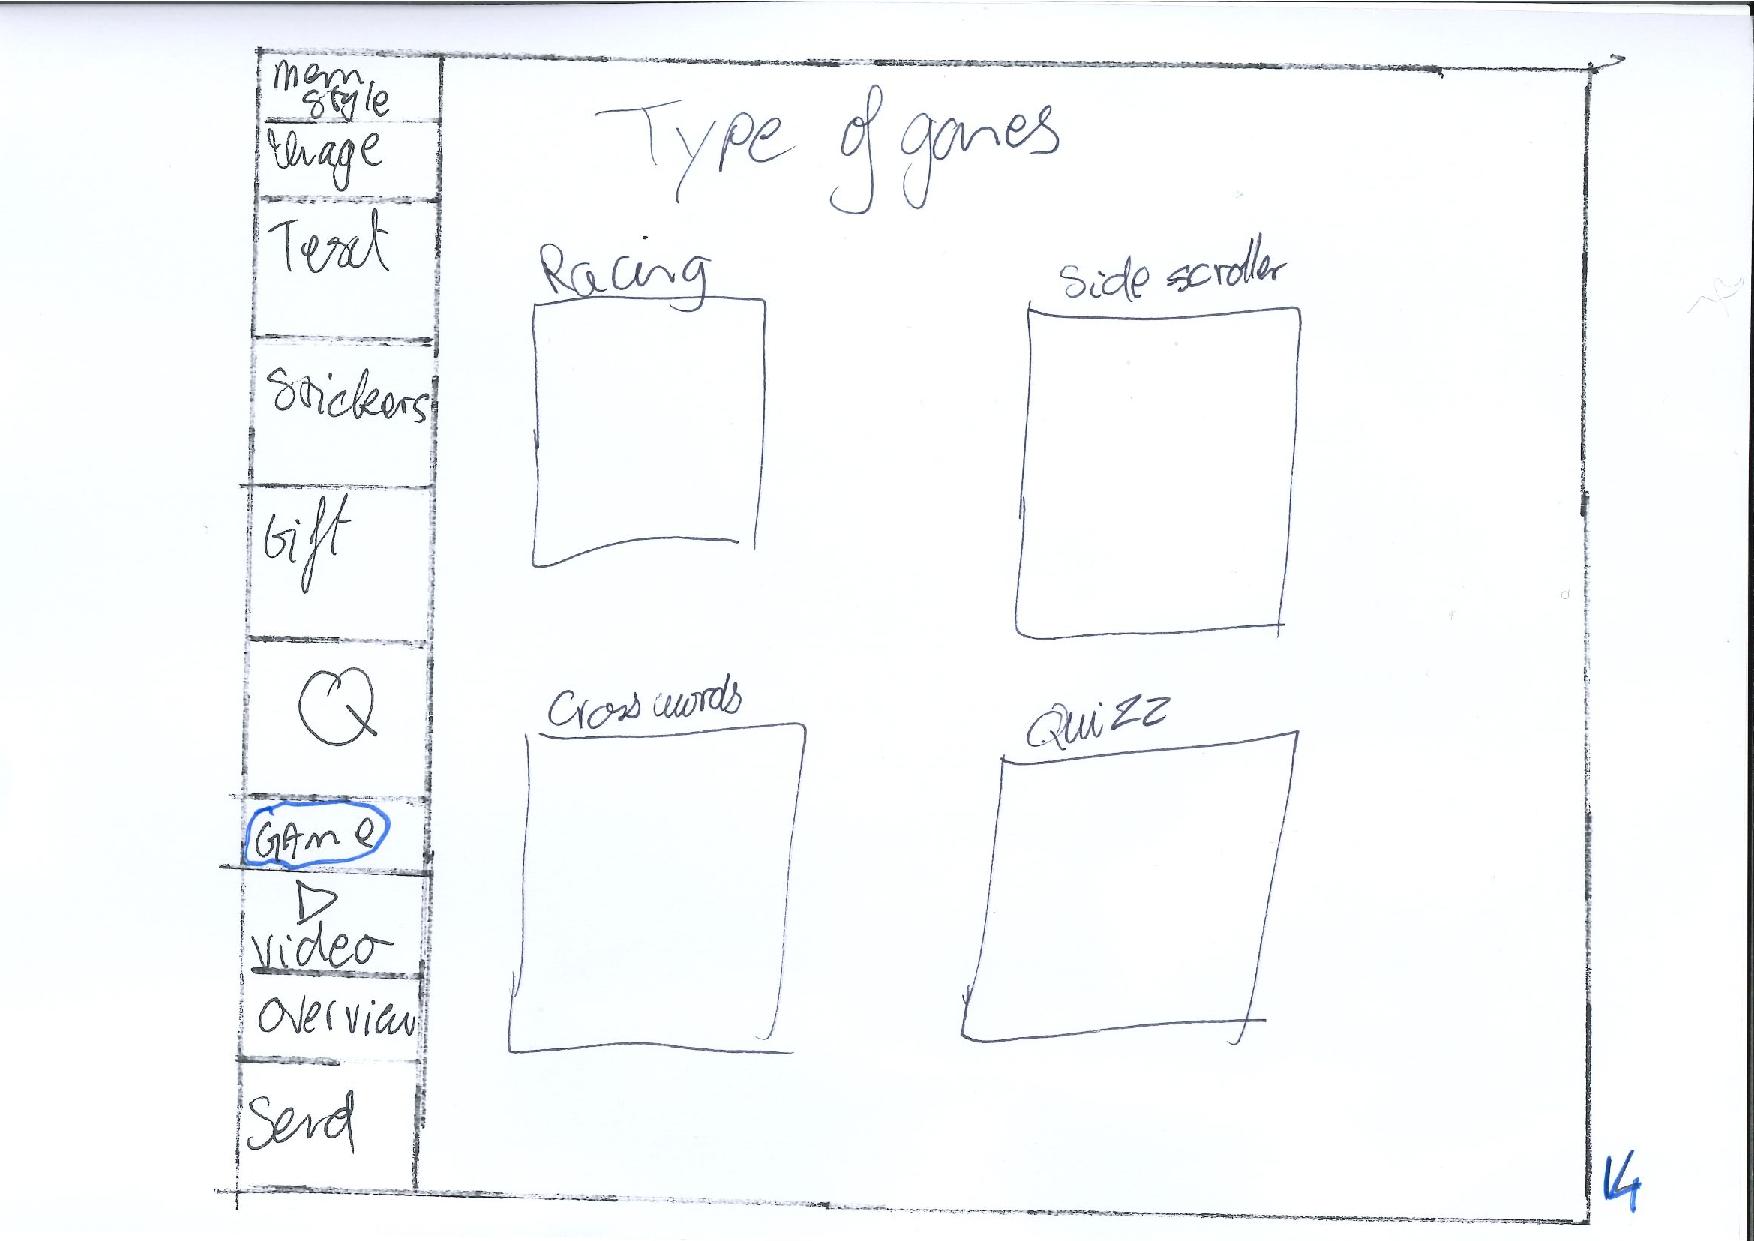 Mem
style
Image
Text
Stickers
Gift
Game
video
overview
Send
Type of games
Racing
Side scroller
Crosswords
Quizz
14